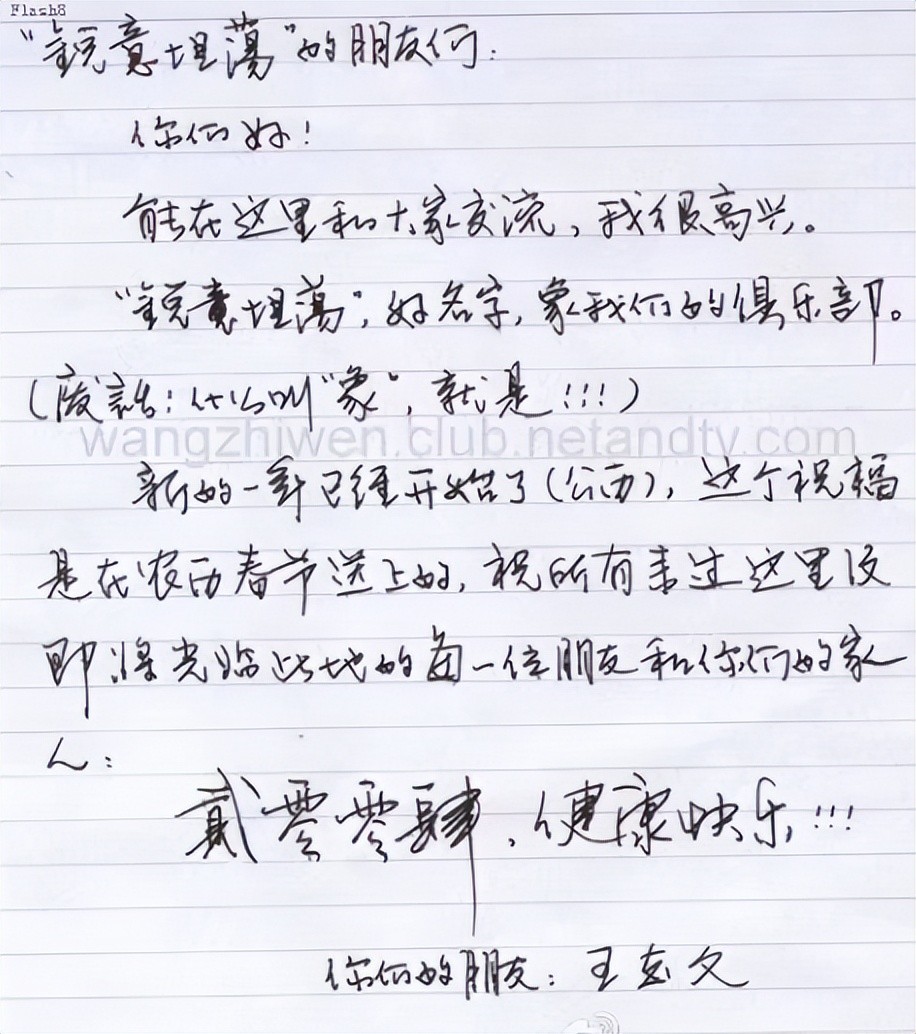 Flash8
“锐意坦荡”的朋友们：
你们好！
能在这里和大家交流，我很高兴。
“锐意坦荡”，好名字，象我们的俱乐部。
（废話：什么叫“象”，就是!!!）
wangzhiwen.club.netandtv.com
新的一年已经开始了（公历），这个祝福
是在农历春节送上的，祝所有来过这里没
即将光临此地的每一位朋友和你们的家
人：
贰零零肆，健康快乐!!!
你们的朋友：王志文